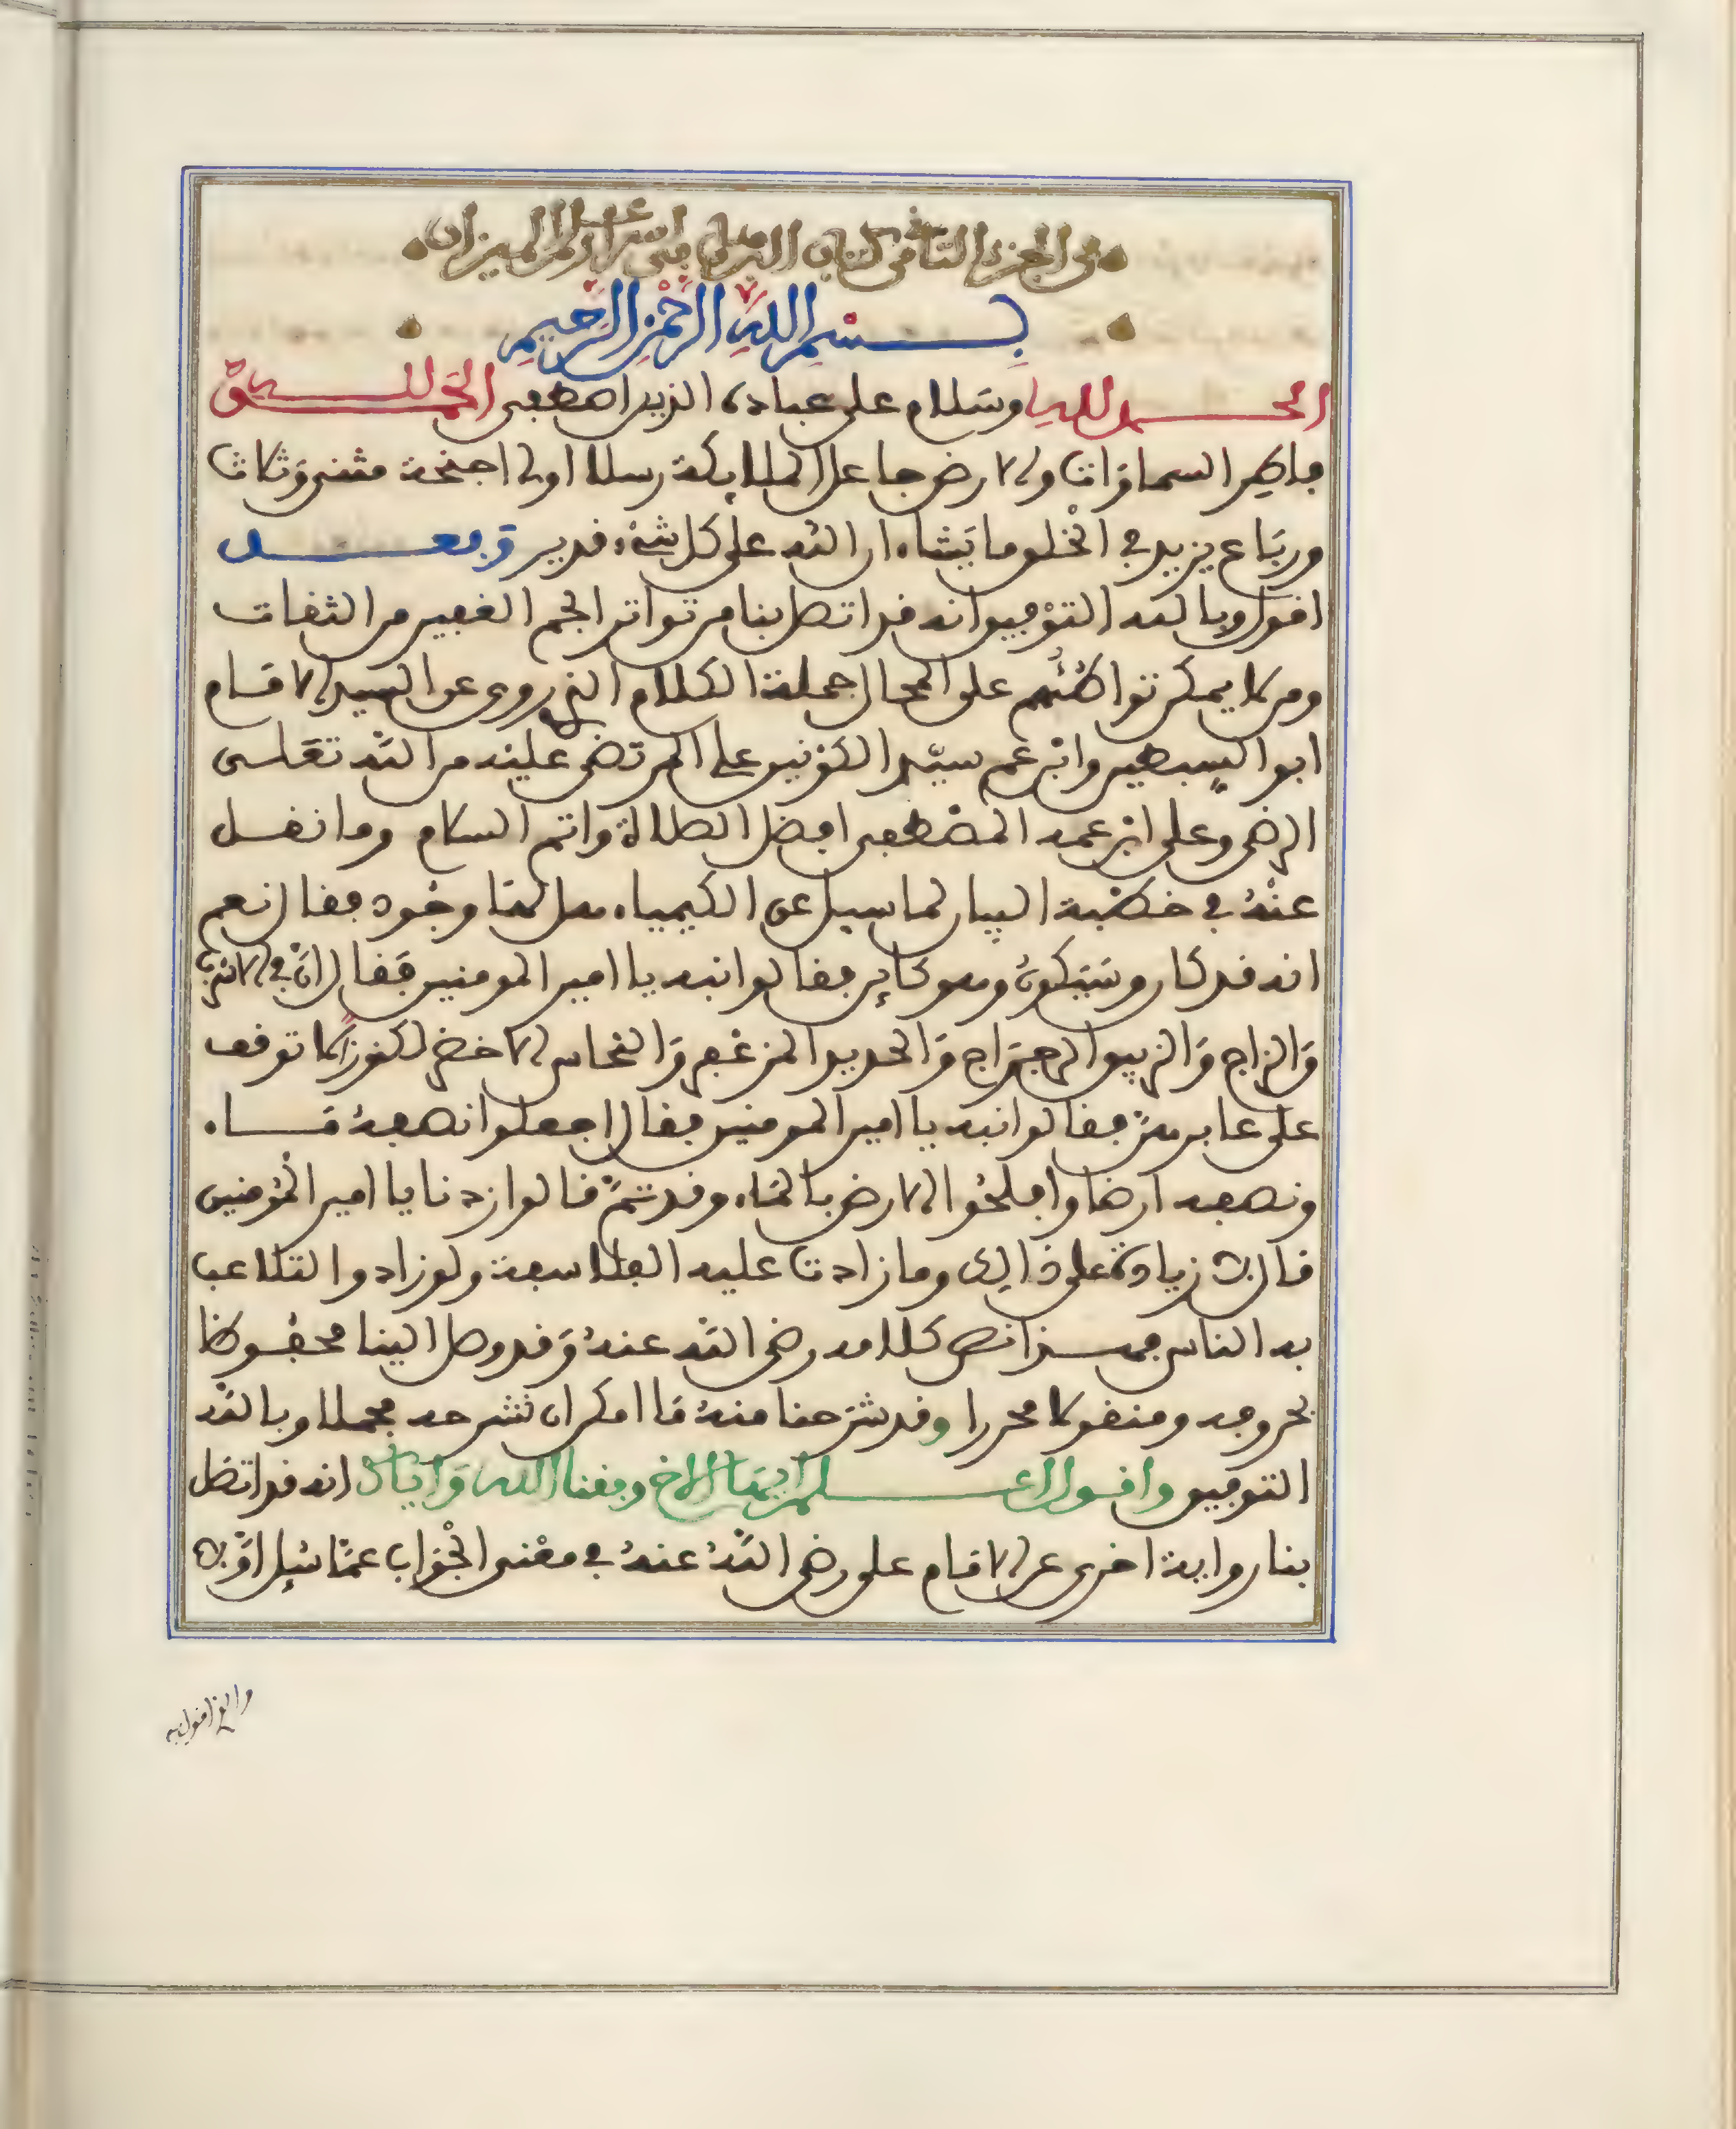 من الجزء الثاني من كتاب البرهان في اسرار علم الميزان
بسم الله الرحمن الرحيم
الحمد لله وسلام على عباده الذين اصطفى الحمد لله
فاطر السماوات والارض جاعل الملايكة رسلا اولي اجنحة مثنى وثلاث
ورباع يزيد في الخلق ما يشاء ان الله على كل شيء قدير وبعد
اقول وبالله التوفيق انه قد اتصل بنا من تواتر الجم الغفير من الثقات
ومن لا يمكن تواطئهم على المحال جملة الكلام الذي روي عن السيد الامام
ابو السبطين وابن عم سيد الكونين علي المرتضى عليه من الله تعلى
الرضى وعلى ابن عمه المصطفى افضل الصلاة واتم السلام وما نقل
عنه في خطبة البيان لما سيل عن الكيمياء هل لها وجود فقال نعم
انه قد كان وسيكون وهو كاين فقالوا نبه يا امير المومنين فقال ان في الاسرب
والزاج والزيبق الرجراج والحديد المزعفر والنحاس الاخضر لكنوز لا توقف
على عابرهن فقالوا نبه يا امير المومنين فقال اجعلوا نصفه ماء
ونصفه ارضا وافلحوا الارض بالماء وقد تم قالوا زدنا يا امير المومنين
قال لا زيادة على ذالك وما زادت عليه الفلاسفة ولو زادوا لتلاعب
به الناس فهذا نص كلامه رضي الله عنه وقد وصل الينا محفوظا
بحروفه ومنقولا محررا وقد شرحنا منه ما امكن ان نشرحه مجملا وبالله
التوفيق واقول اعلم ايها الاخ وفقنا الله واياك انه قد اتصل
بنا رواية اخرى عن الامام علي رضي الله عنه في معنى الجواب عما سيل اولا
والذي اقول به